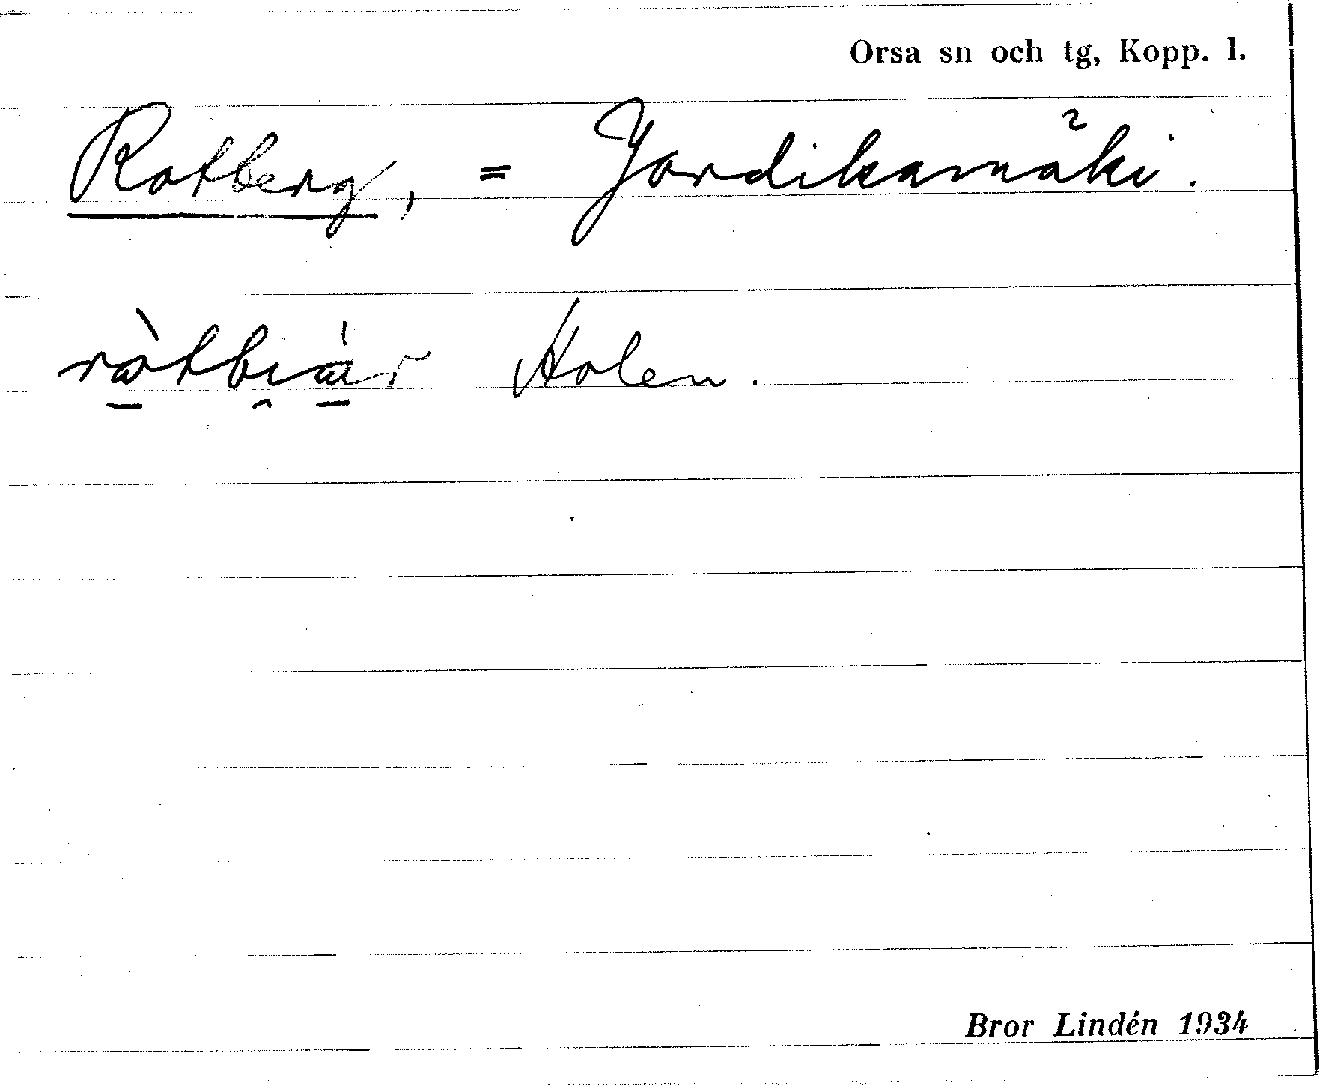 Orsa sn och tg, Kopp. l.
Rotberg, = Jordikamäki.
Holen.
Bror Lindén 1934